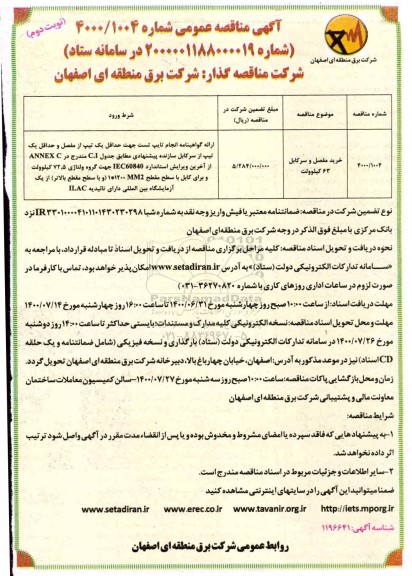 آگهی مناقصه عمومی شماره ۴۰۰۰/۱۰۰۴
(نوبت دوم)
(شماره ۲۰۰۰۰۰۱۱۸۸۰۰۰۰۱۹ در سامانه ستاد)
شرکت مناقصه گذار: شرکت برق منطقه ای اصفهان
شرکت برق منطقه ای اصفهان
شماره مناقصه
موضوع مناقصه
مبلغ تضمین شرکت در مناقصه (ریال)
شرح ورود
۴۰۰۰/۱۰۰۴
خرید مفصل و سرکابل ۶۳ کیلوولت
۵/۲۸۴/۰۰۰/۰۰۰
ارائه گواهینامه انجام تایپ تست جهت حداقل یک تیپ از مفصل و حداقل یک
تیپ از سرکابل سازنده پیشنهادی مطابق جدول C.1 مندرج در ANNEX C
از آخرین ویرایش استاندارد IEC60840 جهت گروه ولتاژی ۷۲.۵ کیلوولت
و برای کابل با سطح مقطع ۱×۱۲۰۰ MM2 (و یا سطح مقطع بالاتر) از یک
آزمایشگاه بین المللی دارای تائیدیه ILAC
نوع تضمین شرکت در مناقصه: ضمانتنامه معتبر یا فیش واریز وجه نقد به شماره شبا IR۳۳۰۱۰۰۰۰۴۱۰۱۱۰۱۴۳۰۲۳۰۲۹۸ نزد
بانک مرکزی با مبلغ فوق الذکر در وجه شرکت برق منطقه ای اصفهان
نحوه دریافت و تحویل اسناد مناقصه: کلیه مراحل برگزاری مناقصه از دریافت و تحویل اسناد تا مبادله قرارداد، با مراجعه به
«سامانه تدارکات الکترونیکی دولت (ستاد)» به آدرس www.setadiran.ir امکان پذیر خواهد بود. تماس با کارفرما در
صورت لزوم در ساعات اداری روزهای کاری با شماره (۰۳۱-۳۶۲۷۰۸۲۰)
مهلت دریافت اسناد: از ساعت ۱۰:۰۰ صبح روز چهارشنبه مورخ ۱۴۰۰/۰۶/۳۱ تا ساعت ۱۶:۰۰ روز چهارشنبه مورخ ۱۴۰۰/۰۷/۱۴
مهلت و محل تحویل اسناد مناقصه: نسخه الکترونیکی کلیه مدارک و مستندات: بایستی حداکثر تا ساعت ۱۴:۰۰ روز دوشنبه
مورخ ۱۴۰۰/۰۷/۲۶ در سامانه تدارکات الکترونیکی دولت (ستاد) بارگذاری و نسخه فیزیکی (شامل ضمانتنامه و یک حلقه
CD اسناد) نیز در موعد مذکور به آدرس: اصفهان، خیابان چهارباغ بالا، دبیرخانه شرکت برق منطقه ای اصفهان تحویل گردد.
زمان و محل بازگشایی پاکات مناقصه: ساعت ۱۰:۰۰ صبح روز سه شنبه مورخ ۱۴۰۰/۰۷/۲۷-سالن کمیسیون معاملات ساختمان
معاونت مالی و پشتیبانی شرکت برق منطقه ای اصفهان
شرایط مناقصه:
۱-به پیشنهادهایی که فاقد سپرده یا امضای مشروط و مخدوش بوده و یا پس از انقضاء مدت مقرر در آگهی واصل شود ترتیب
اثر داده نخواهد شد.
۲-سایر اطلاعات و جزئیات مربوط در اسناد مناقصه مندرج است.
ضمنا میتوانید این آگهی را در سایتهای اینترنتی مشاهده کنید
www.setadiran.ir www.erec.co.ir www.tavanir.org.ir http://iets.mporg.ir
شناسه آگهی: ۱۱۹۶۶۴۱
روابط عمومی شرکت برق منطقه ای اصفهان